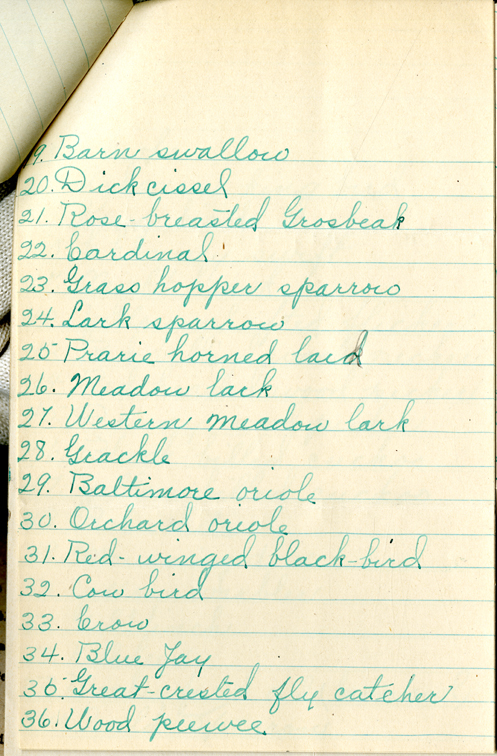 9. Barn swallow
20. Dick cissel
21. Rose-breasted Grosbeak
22. Cardinal
23. Grass hopper sparrow
24. Lark sparrow
25 Prarie horned lark
26. Meadow lark
27. Western meadow lark
28. Grackle
29. Baltimore oriole
30. Orchard oriole
31. Red-winged black-bird
32. Cow bird
33. Crow
34. Blue Jay
35. Great-crested fly catcher
36. Wood peewee